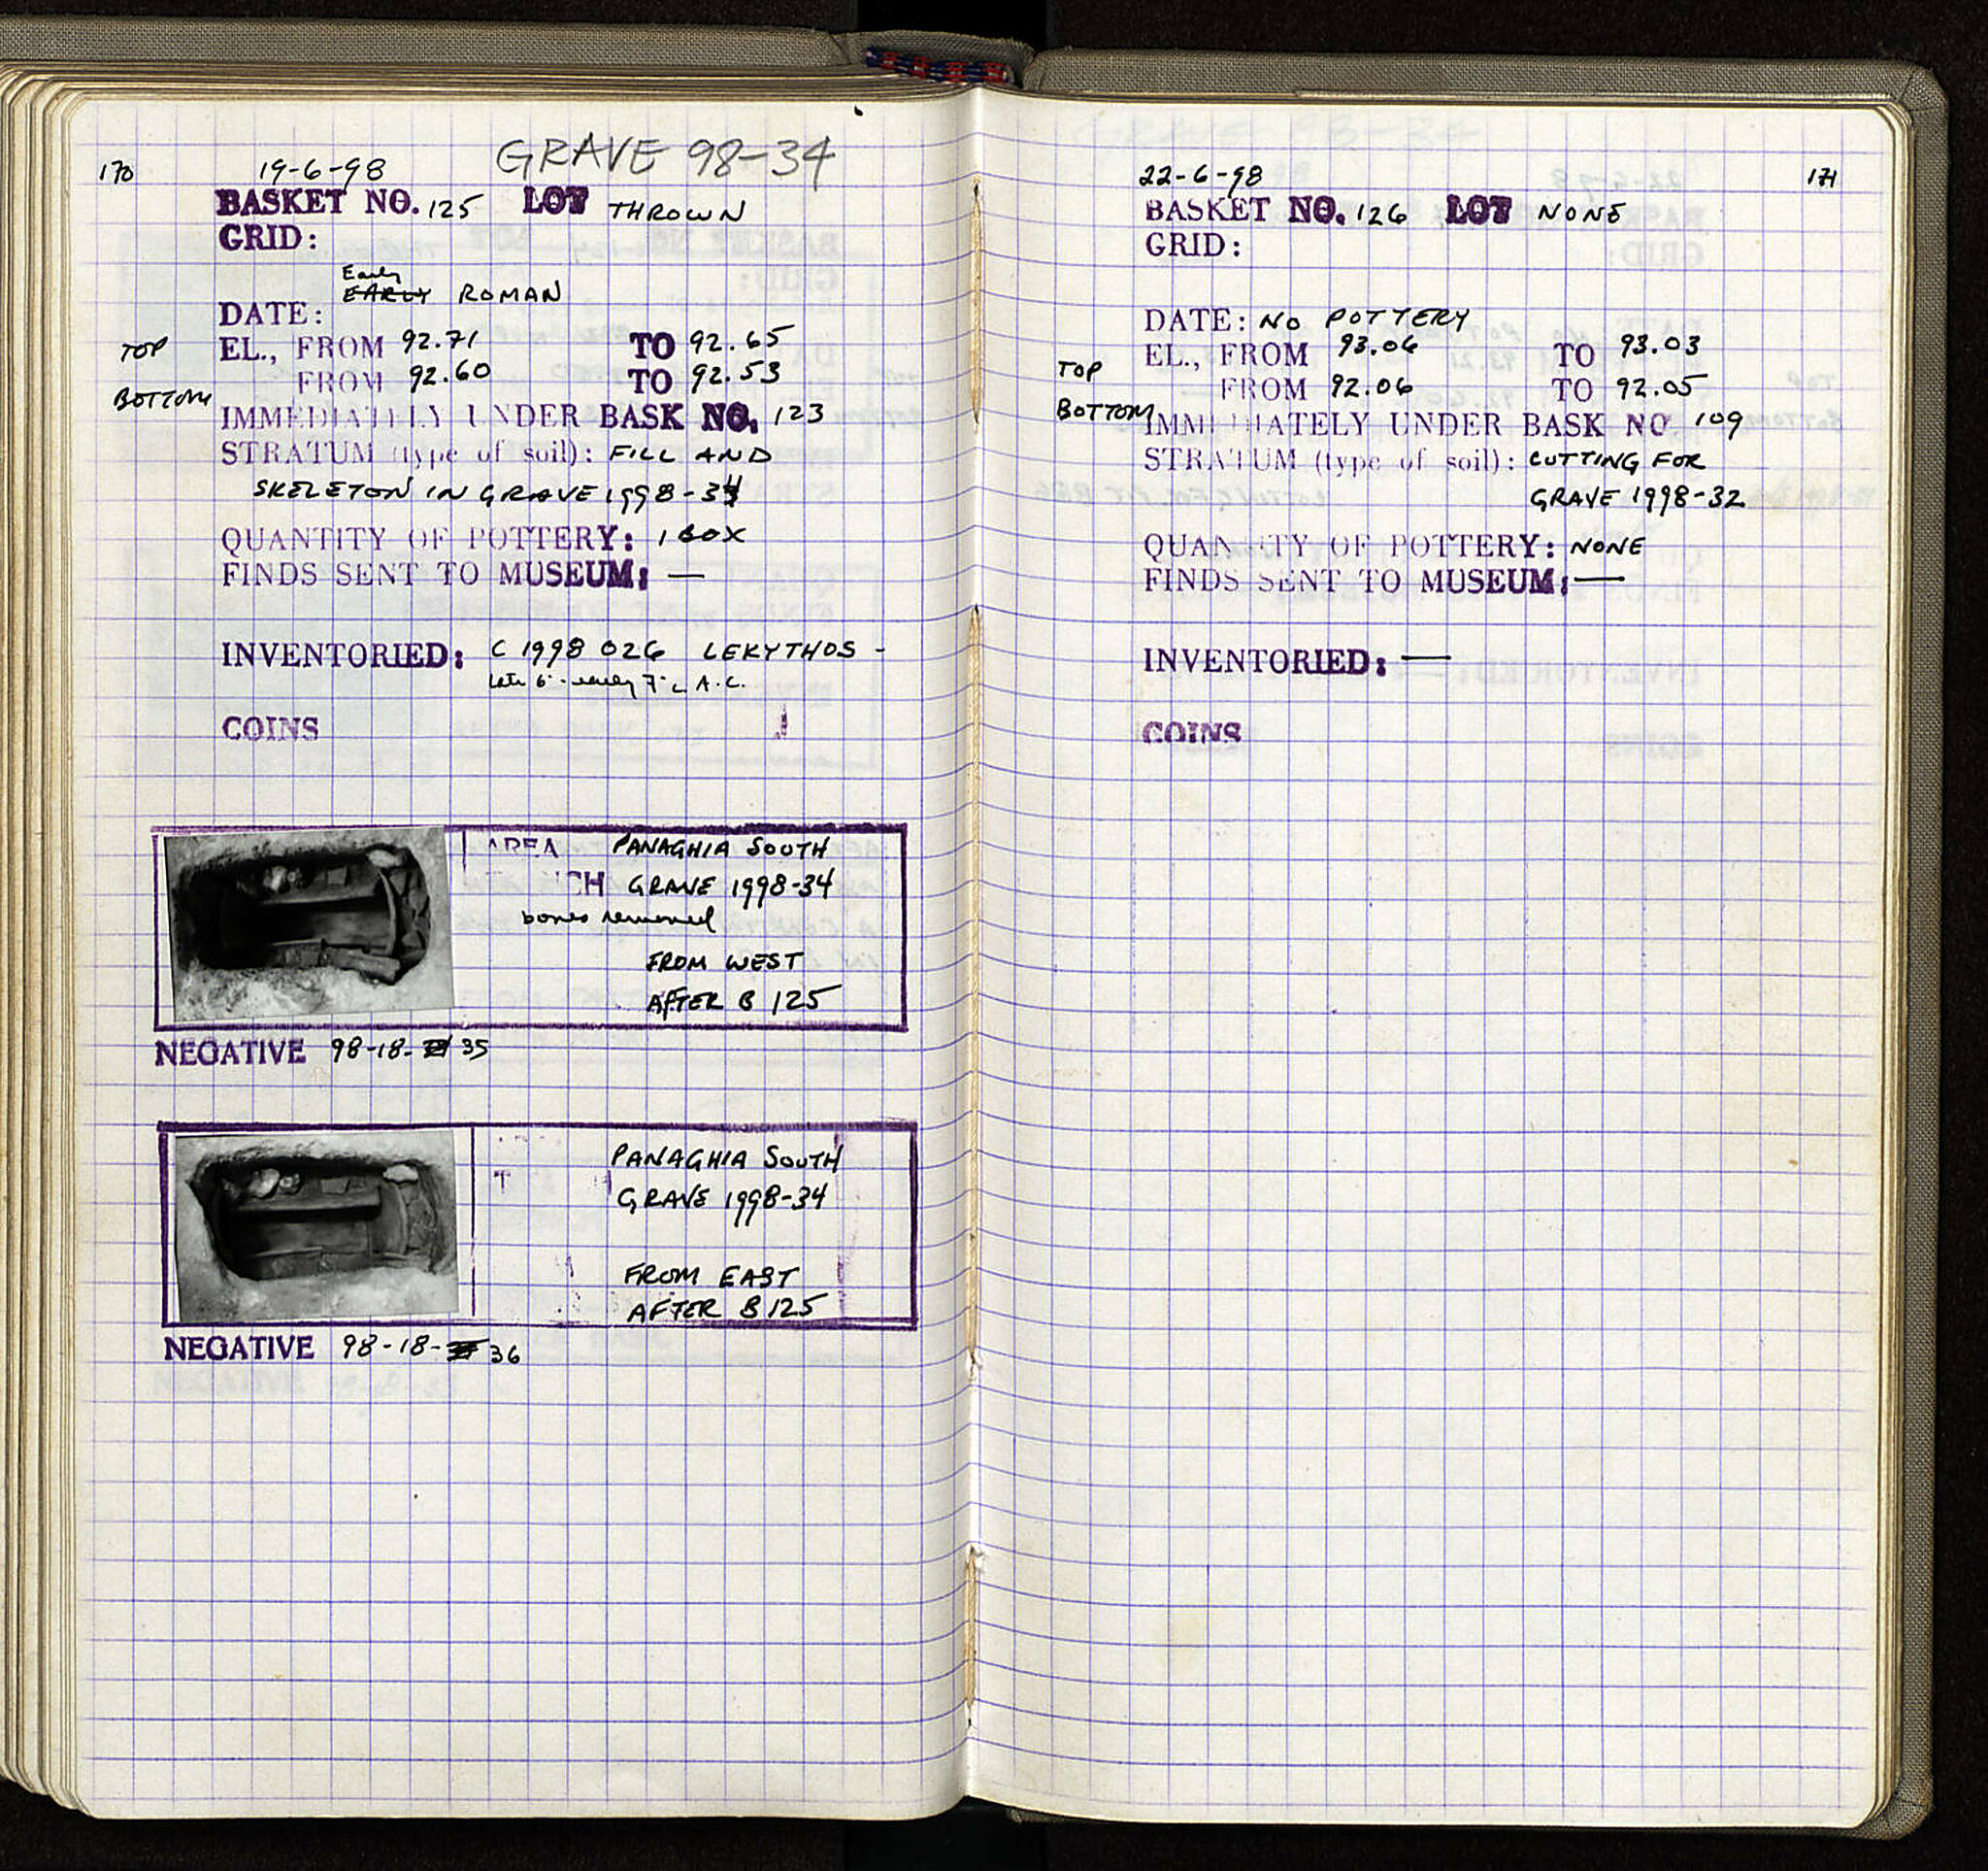 170
19-6-98 GRAVE 98-34
BASKET NO. 125 LOT THROWN
GRID:
Early
EARLY ROMAN
DATE:
TOP EL., FROM 92.71 TO 92.65
BOTTOM FROM 92.60 TO 92.53
IMMEDIATELY UNDER BASK NO. 123
STRATUM (type of soil): FILL AND
SKELETON IN GRAVE 1998-34
QUANTITY OF POTTERY: 1 BOX
FINDS SENT TO MUSEUM: —
INVENTORIED: C 1998 026 LEKYTHOS -
Late 6 - early 7 c A.C.
COINS
AREA PANAGHIA SOUTH
NCH GRAVE 1998-34
bones removed
FROM WEST
AFTER B 125
NEGATIVE 98-18- 35
T PANAGHIA SOUTH
GRAVE 1998-34
FROM EAST
AFTER B 125
NEGATIVE 98-18- 36
171
22-6-98
BASKET NO. 126 LOT NONE
GRID:
DATE: NO POTTERY
TOP EL., FROM 93.06 TO 93.03
BOTTOM FROM 92.06 TO 92.05
IMMEDIATELY UNDER BASK NO 109
STRATUM (type of soil): CUTTING FOR
GRAVE 1998-32
QUANTITY OF POTTERY: NONE
FINDS SENT TO MUSEUM: —
INVENTORIED: —
COINS